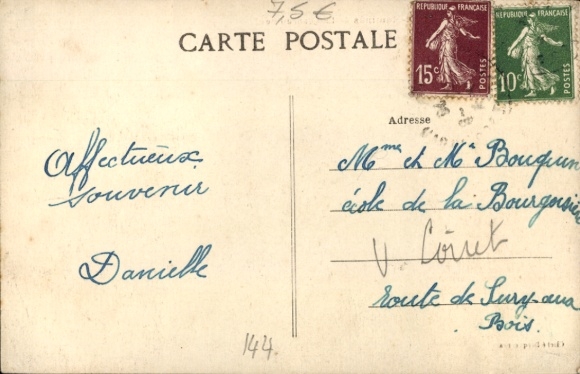 7,5 €
CARTE POSTALE
REPUBLIQUE FRANÇAISE
15c
POSTES
REPUBLIQUE FRANÇAISE
10c
POSTES
Adresse
Affectueux
souvenir
Danielle
Mme et Mr
école de la
route de
Bois.
144.